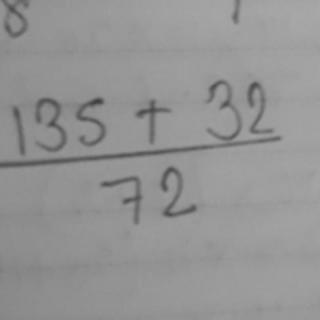 8
135 + 32
72